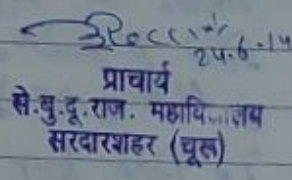 24.6.14
प्राचार्य
से.बु.दू.राज. महावि...लय
सरदारशहर (चूरू)